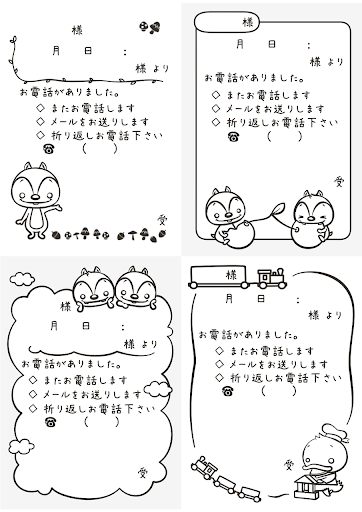 様
月 日 :
様 より
お電話がありました。
◇ またお電話します
◇ メールをお送りします
◇ 折り返しお電話下さい
☎ ( )
受
様
月 日 :
様 より
お電話がありました。
◇ またお電話します
◇ メールをお送りします
◇ 折り返しお電話下さい
☎ ( )
受
様
月 日 :
様 より
お電話がありました。
◇ またお電話します
◇ メールをお送りします
◇ 折り返しお電話下さい
☎ ( )
受
様
月 日 :
様 より
お電話がありました。
◇ またお電話します
◇ メールをお送りします
◇ 折り返しお電話下さい
☎ ( )
受